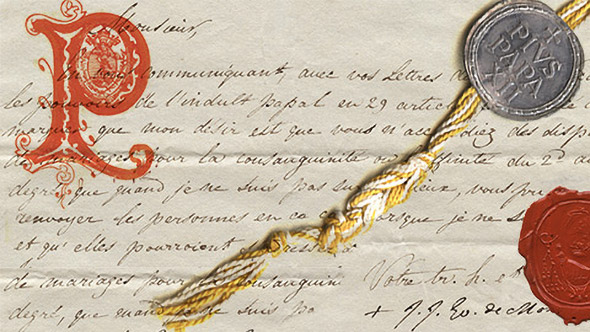 P
Monsieur,
En vous communiquant, avec vos Lettres de
les pouvoirs de l'indult papal en 29 artic
marques que mon désir est que vous n'accordiez des disp
de mariages, pour la consanguinité ou affinitet du 2.d au
degré, que quand je ne suis pas sur lieux, vous pou
renvoyer les personnes en ca ca lorsque je ne s
et qu'elles pourroient
de mariages pour la consanguini
Votre tr. h. et
degré, que quand je ne suis pa
+ J. J. Ev. de Mo
+
PIVS
PAPA
XII